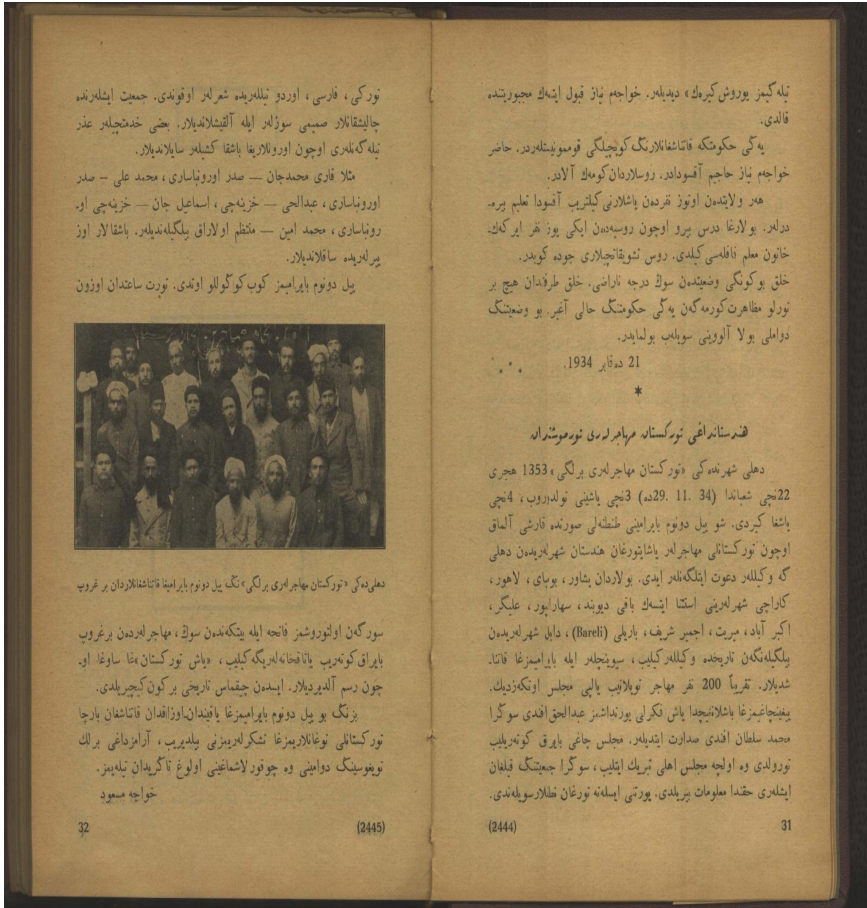 تیله‌گیمز یوروش کیره‌ك» دیدیله‌ر. خواجه‌م نیاز قبول ایتمه‌ك مجبوریتنده
قالدی.
یه‌گی حکومتکه قاتناشغانلارنڭ کوبچیلگی قوممونیستله‌ردر. حاضر
خواجه‌م نیاز حاجیم آقسودادر. روسلاردان کومه‌ك آلادر.
هه‌ر ولایتدن اوتوز نفردن یاشلارنی کیلتریب آقسودا تعلیم بیره‌-
درله‌ر. بولارغا درس بیرو اوچون روسیه‌دن ایکی یوز نفر ایر که‌ك،
خاتون معلم قافله‌سی کیلدی. روس تشویقاتچیلاری جوده کوبدر.
خلق بو کونگی وضعیتدن سوڭ درجه ناراضی. خلق طرفدان هیچ بر
تورلو مظاهرت کورمه‌گه‌ن یه‌گی حکومتنڭ حالی آغیر. بو وضعیتنڭ
دواملی بولا آلووینی سویله‌ب بولمایدر.
21 ده‌قابر 1934.
* * *
*
هندستانداغی تورکستان مهاجرله‌ری تورموشندان
دهلی شهرنده‌کی «تورکستان مهاجرله‌ری برلگی» 1353 هجری
22نچی شعباندا (34 .11 .29ده) 3نچی یاشینی تولدوروب، 4نچی
یاشغا کیردی. شو ییل دونوم بایرامینی طنطنه‌لی صورتده قارشی آلماق
اوچون تورکستانلی مهاجرله‌ر یاشایتورغان هندستان شهرله‌ریدن دهلی
گه وکیلله‌ر دعوت ایتلگه‌نله‌ر ایدی. بولاردان پشاور، بومبای، لاهور،
کاراچی شهرله‌رینی استثنا ایتسه‌ك باقی دیوبند، سهارانپور، علیگر،
اکبر آباد، میریت، اجمیر شریف، باریلی (Bareli)، دابل شهرله‌ریدن
بیلگیله‌نگه‌ن تاریخده وکیلله‌ر کیلیب، سیوینچله‌ر ایله بایرامیمزغا قاتنا-
شدیلار. تقریباً 200 نفر مهاجر توپلانیب یالپی مجلس اوتکه‌زدیك.
ییغینچاغیمزغا باشلانیچدا یاش فکرلی یورتداشمز عبدالحق افندی سوڭرا
محمد سلطان افندی صدارت ایتدیله‌ر. مجلس چاغی بایرق کوته‌ریلیب
تورولدی وه اولچه مجلس اهلی تبریك ایتلیب، سوڭرا جمعیتنڭ قیلغان
ایشله‌ری حقندا معلومات بیریلدی. یورتنی ایسله‌ته تورغان نطقلار سویله‌ندی.
31
(2444)
تورکی، فارسی، اوردو تیلله‌ریده شعرله‌ر اوقوندی. جمعیت ایشله‌رنده
چالیشقانلار صمیمی سوزله‌ر ایله آلقیشلاندیلار. بعضی خدمتچیله‌ر عذر
تیله‌گه‌نله‌ری اوچون اورونلاریغا باشقا کشیله‌ر سایلاندیلار.
مثلا قاری محمدجان — صدر اورونباساری، محمد علی — صدر
اورونباساری، عبدالحی — خزینه‌چی، اسماعیل جان — خزینه‌چی او-
رونباساری، محمد امین — منتظم اولاراق بیلگیله‌ندیله‌ر. باشقالار اوز
ییرله‌ریده ساقلاندیلار.
ییل دونوم بایرامیمز کوب کوڭوللو اوتدی. تورت ساعتدان اوزون
دهلی‌ده‌کی «تورکستان مهاجرله‌ری برلگی» نڭ ییل دونوم بایرامیغا قاتناشغانلاردان بر غروپ
سورگه‌ن اولتوروشمز فاتحه ایله بیتکه‌ندن سوڭ، مهاجرله‌ردن برغروپ
بایراق کوته‌ریب یاتاقخانه‌له‌ریگه کیلیب، «یاش تورکستان»غا ساوغا او-
چون رسم آلدیردیلار. ایسده‌ن چیقماس تاریخی بر کون کیچیریلدی.
بزنڭ بو ییل دونوم بایرامیمزغا یاقیندان-اوزاقدان قاتناشغان بارچا
تورکستانلی توغانلاریمزغا تشکرله‌ریمزنی بیلدیریب، آرامزداغی برلك
تویغوسینڭ دوامینی وه چوقورلاشماغینی اولوغ تاڭریدان تیله‌یمز.
خواجه مسعود
(2445)
32